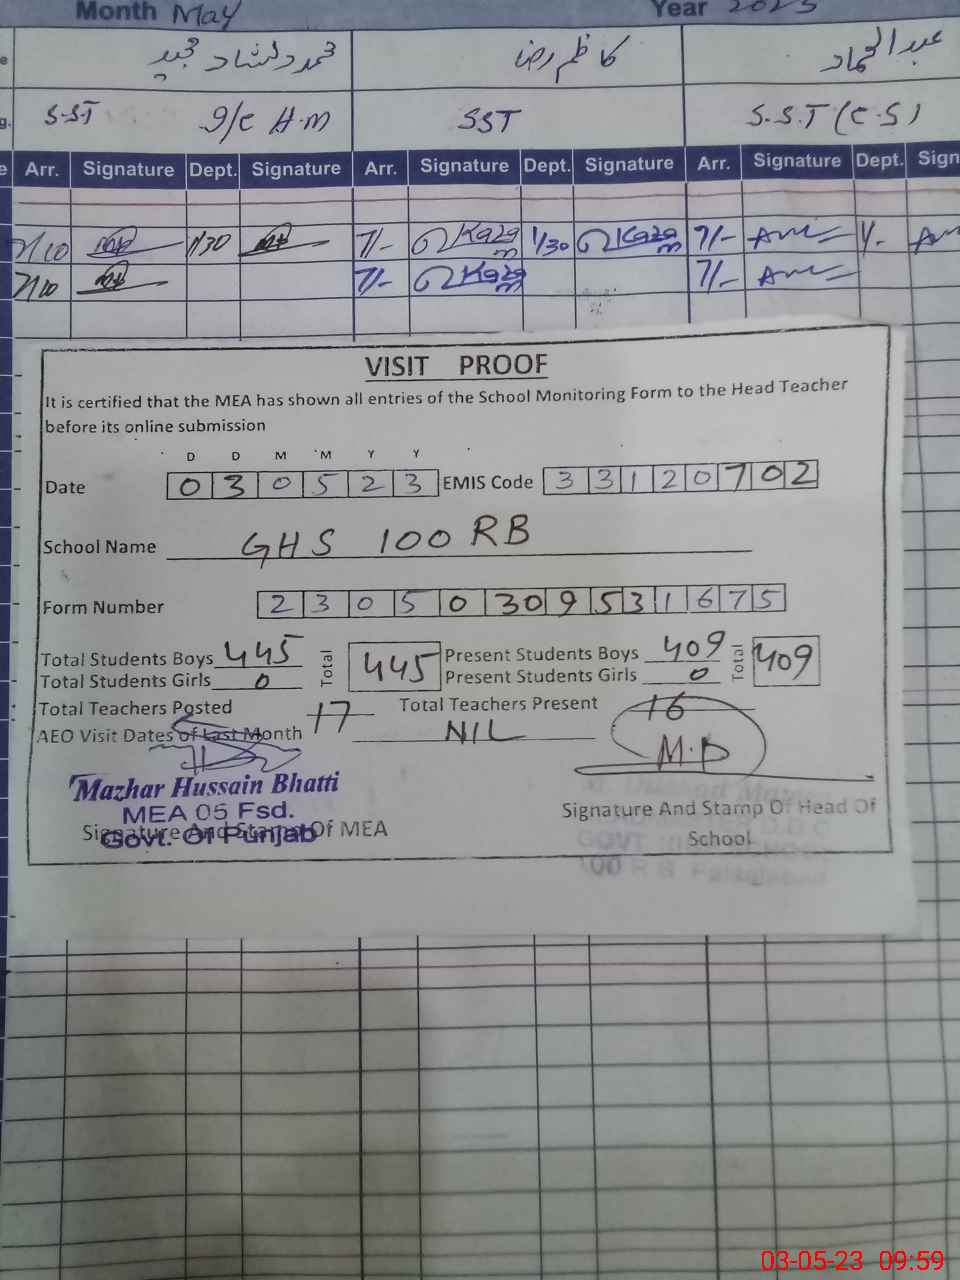 Month May Year 2023
محمد دلشاد مجید کاظم رضا عبدالحماد
S.ST I/C H.M SST S.S.T (C.S)
Arr. Signature Dept. Signature Arr. Signature Dept. Signature Arr. Signature Dept. Sign
7/10 1/30 7/- Kazam 1/30 Kazam 7/- 1/-
7/10 7/- Kazam 7/-
VISIT PROOF
It is certified that the MEA has shown all entries of the School Monitoring Form to the Head Teacher
before its online submission
D D M M Y Y
Date 0 3 0 5 2 3 EMIS Code 3 3 1 2 0 7 0 2
School Name GHS 100 RB
Form Number 2 3 0 5 0 3 0 9 5 3 1 6 7 5
Total Students Boys 445 Total 445 Present Students Boys 409 Total 409
Total Students Girls 0 Present Students Girls 0
Total Teachers Posted 17 Total Teachers Present 16
AEO Visit Dates of Last Month NIL
M.D
Mazhar Hussain Bhatti
MEA 05 Fsd.
Govt. Of Punjab
Signature And Stamp Of MEA
Signature And Stamp Of Head Of
School
100 R B Faisalabad
03-05-23 09:59